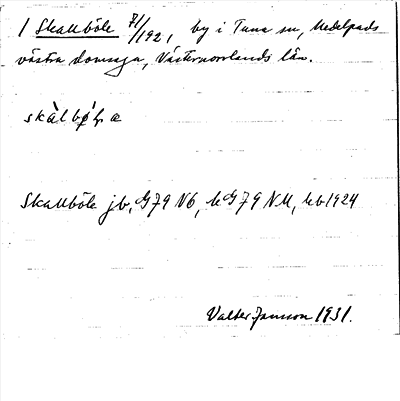 1 Skallböle 71/192, by i Tuna sn, Medelpads
västra domsaga, Västernorrlands län.
skàlbø̀l̥æ
Skallböle jb, G79 NÖ, hG79 NU, kb 1924
Valter Jansson 1931.